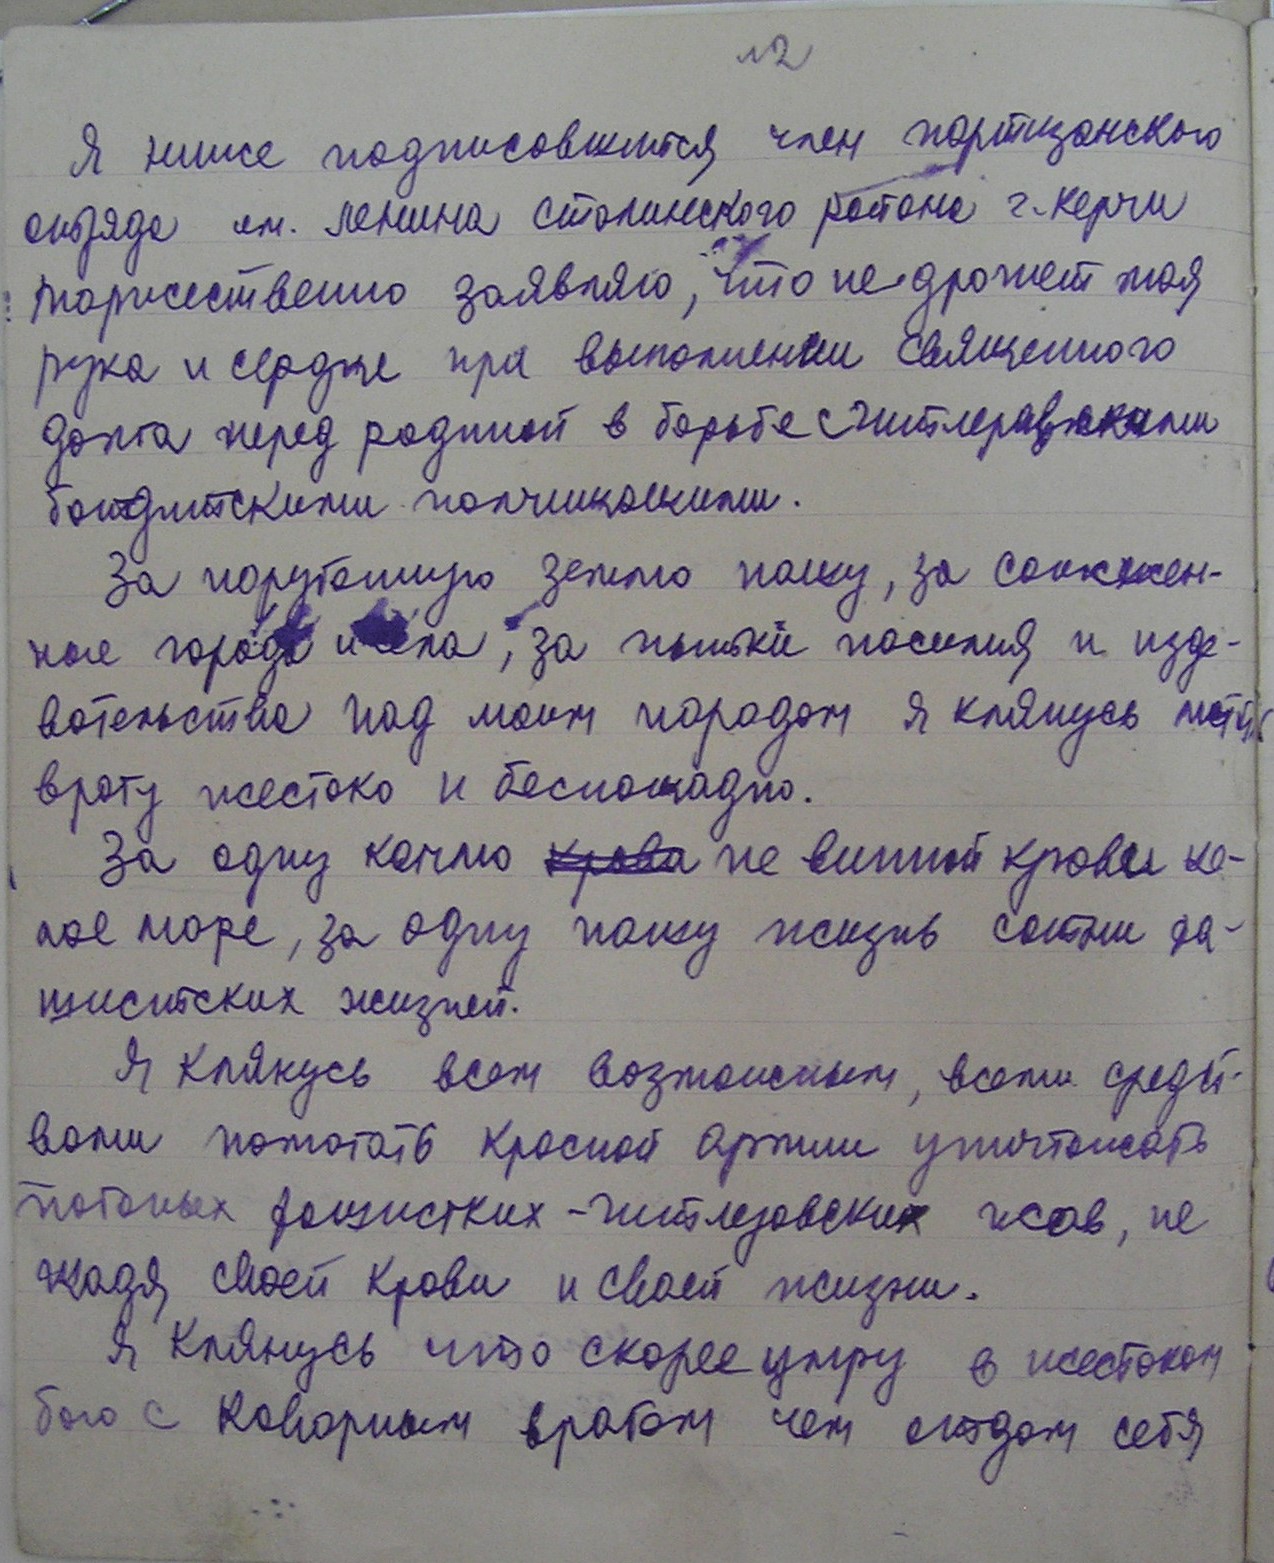 №2
Я ниже подписовшийся член партизанского
отряда им. Ленина Сталинского района г. Керчи
торжественно заявляю, что не дрожет моя
рука и сердце при выполнении священного
долга перед родиной в борьбе с гитлеравскими
бандитскими полчищащими.
За поруганную землю нашу, за сожжен-
ные города и села, за пытки насилия и изде-
вательства над моим народом я клянусь мстить
врагу жестоко и беспощадно.
За одну каплю крови не винной крови це-
лое море, за одну нашу жизнь сотни фа-
шиситских жизней.
Я клянусь всем возможным, всеми средст-
вами помогать Красной армии уничтожать
поганых фашистких-гитлеровских псов, не
щадя своей крови и своей жизни.
Я клянусь что скорее умру в жестоком
бою с коварным врагом чем отдам себя